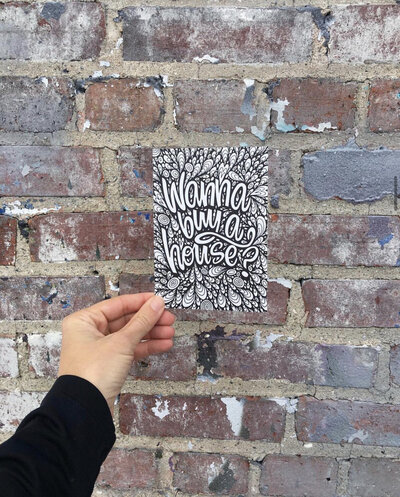 Wanna
buy a
house?